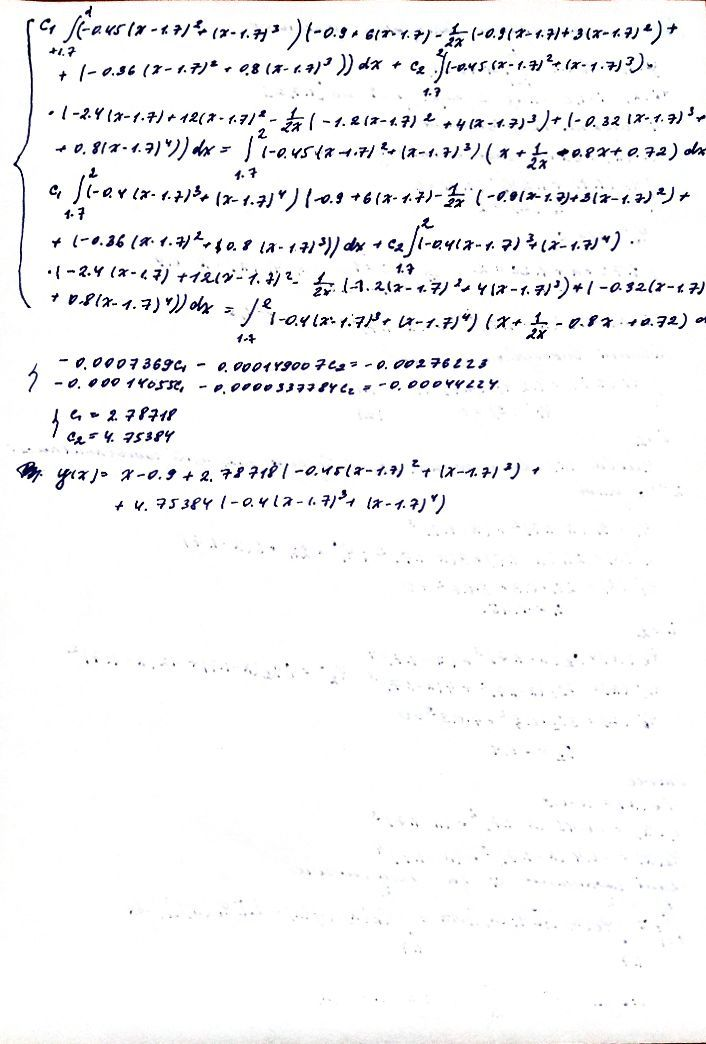 C₁ ∫(-0.45(x-1.7)²+(x-1.7)³)(-0.9+6(x-1.7)-1/2x(-0.9(x-1.7)+3(x-1.7)²)+
+(-0.36(x-1.7)²+0.8(x-1.7)³))dx + C₂ ∫(-0.45(x-1.7)²+(x-1.7)³)·
·(-2.4(x-1.7)+12(x-1.7)²-1/2x(-1.2(x-1.7)²+4(x-1.7)³)+(-0.32(x-1.7)³+
+0.8(x-1.7)⁴))dx = ∫(-0.45(x-1.7)²+(x-1.7)³)(x+1/2x-0.8x+0.72)dx
C₁ ∫(-0.4(x-1.7)³+(x-1.7)⁴)(-0.9+6(x-1.7)-1/2x(-0.9(x-1.7)+3(x-1.7)²)+
+(-0.36(x-1.7)²+0.8(x-1.7)³))dx + C₂∫(-0.4(x-1.7)³+(x-1.7)⁴)·
·(-2.4(x-1.7)+12(x-1.7)²-1/2x(-1.2(x-1.7)²+4(x-1.7)³)+(-0.32(x-1.7)
+0.8(x-1.7)⁴))dx = ∫(-0.4(x-1.7)³+(x-1.7)⁴)(x+1/2x-0.8x+0.72)d
-0.0007369C₁-0.000149007C₂=-0.00276223
-0.00014055C₁-0.0000337784C₂=-0.00044224
C₁=2.78718
C₂=4.75384
y(x)=x-0.9+2.78718(-0.45(x-1.7)²+(x-1.7)³)+
+4.75384(-0.4(x-1.7)³+(x-1.7)⁴)